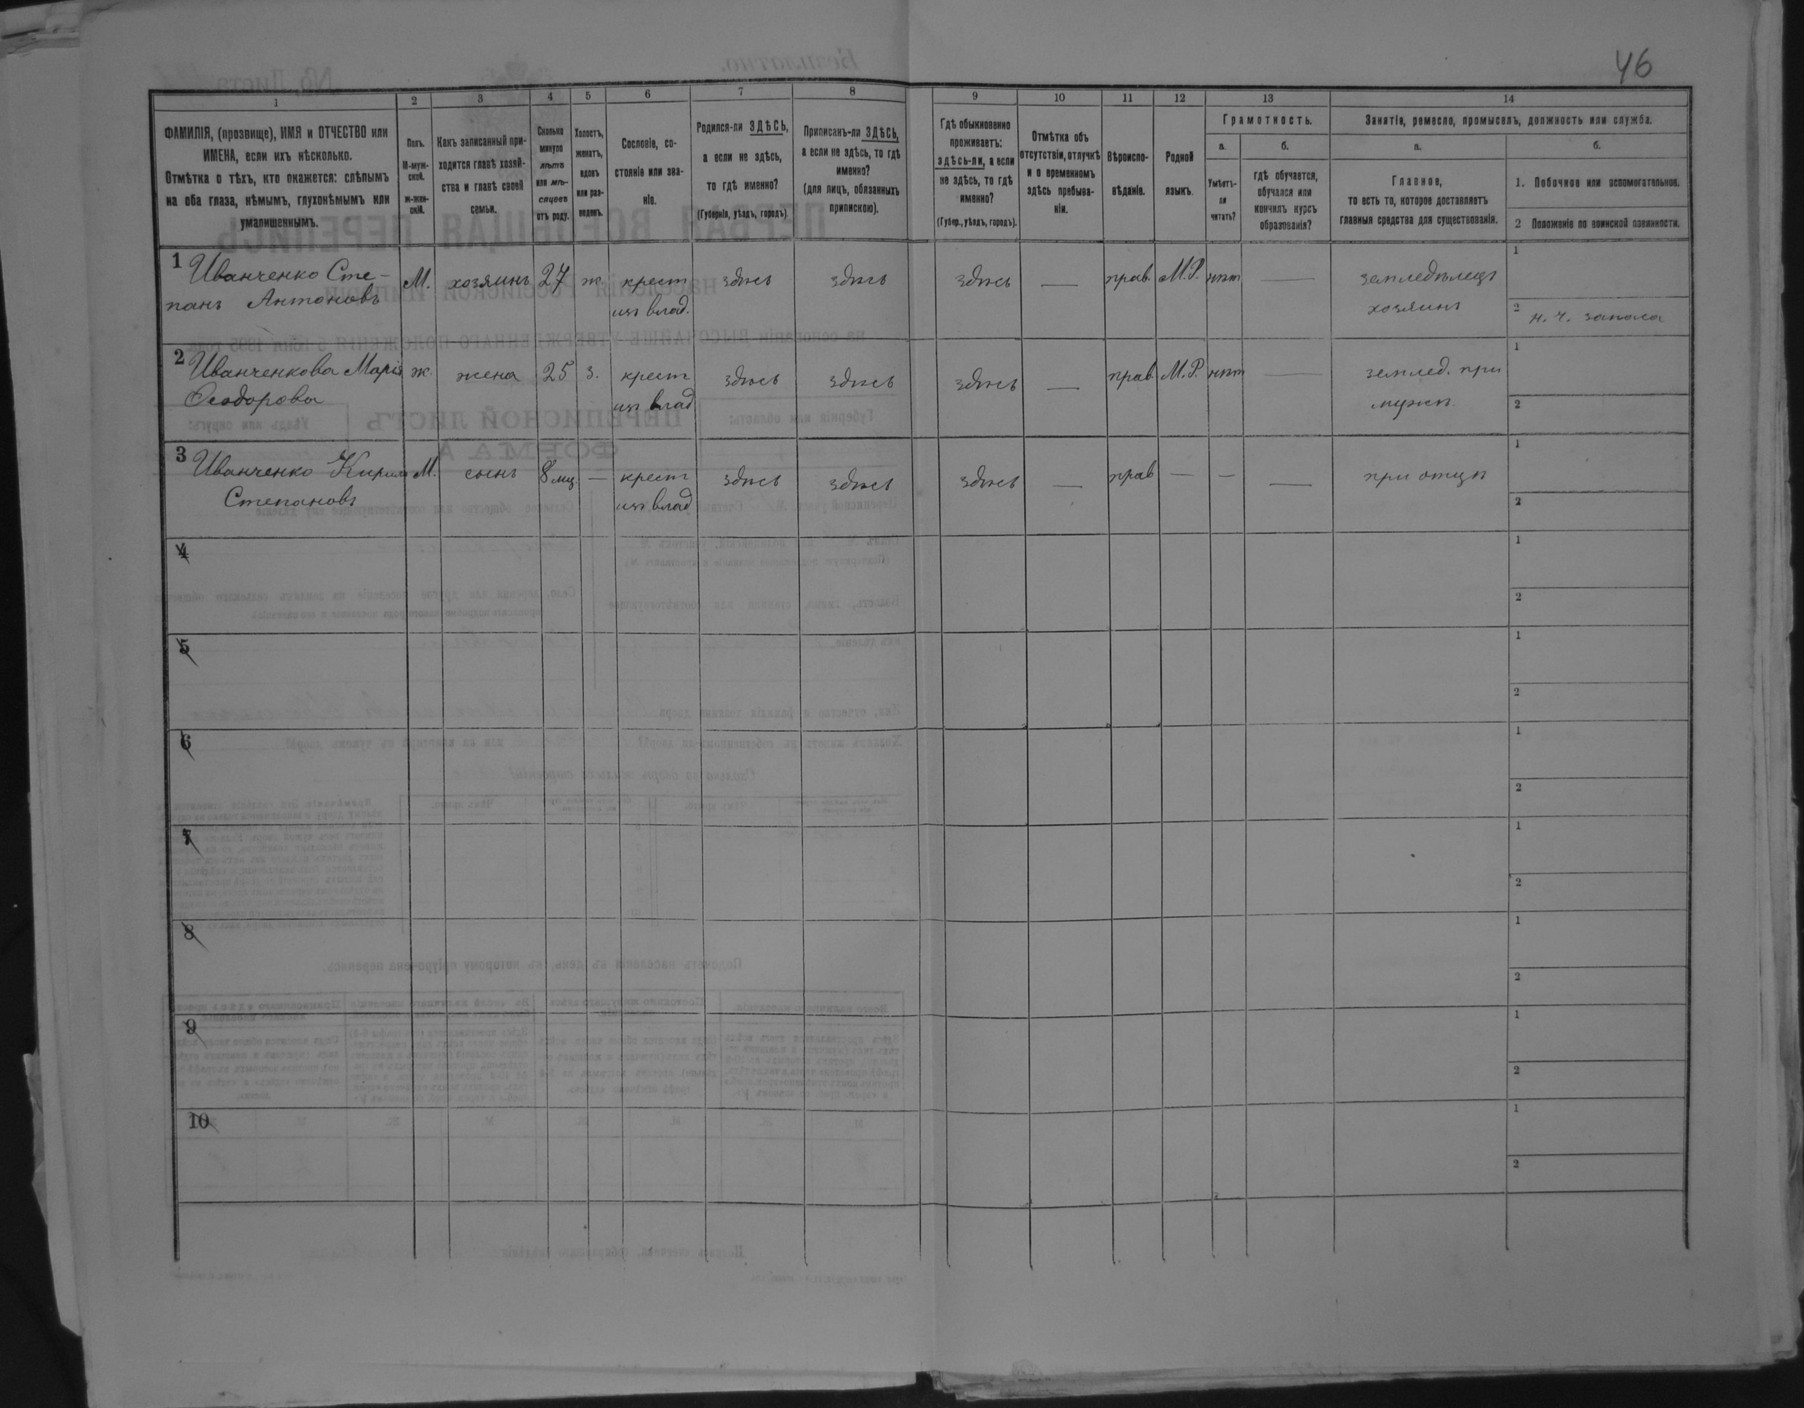 46
1 2 3 4 5 6 7 8 9 10 11 12 13 14
ФАМИЛІЯ, (прозвище), ИМЯ и ОТЧЕСТВО или
ИМЕНА, если ихъ нѣсколько.
Отмѣтка о тѣхъ, кто окажется: слѣпымъ
на оба глаза, нѣмымъ, глухонѣмымъ или
умалишеннымъ.
Полъ.
М-муж-
ской.
ж-жен-
скій.
Какъ записанный при-
ходится главѣ хозяй-
ства и главѣ своей
семьи.
Сколько
минуло
лѣтъ
или мѣ-
сяцевъ
отъ роду.
Холостъ,
женатъ,
вдовъ
или раз-
веденъ.
Сословіе, со-
стояніе или зва-
ніе.
Родился-ли ЗДѢСЬ,
а если не здѣсь,
то гдѣ именно?
(Губернія, уѣздъ, городъ).
Приписанъ-ли ЗДѢСЬ,
а если не здѣсь, то гдѣ
именно?
(для лицъ, обязанныхъ
припискою).
Гдѣ обыкновенно
проживаетъ:
здѣсь-ли, а если
не здѣсь, то гдѣ
именно?
(Губер., уѣздъ, городъ).
Отмѣтка объ
отсутствіи, отлучкѣ
и о временномъ
здѣсь пребыва-
ніи.
Вѣроиспо-
вѣданіе.
Родной
языкъ.
Грамотность.
а.
Умѣетъ-
ли
читать?
б.
гдѣ обучается,
обучался или
кончилъ курсъ
образованія?
Занятія, ремесло, промыселъ, должность или служба.
а.
Главное,
то есть то, которое доставляетъ
главныя средства для существованія.
б.
1. Побочное или вспомогательное.
2 Положеніе по воинской повинности.
1 Иванченко Сте- М. хозяинъ 27 ж. крест здѣсь здѣсь здѣсь — прав. М.Р. нѣт — земледѣлецъ 1
панъ Антоновъ из влад. хозяинъ 2
2 Иванченкова Марія ж. жена 25 з. крест здѣсь здѣсь здѣсь — прав М.Р. нѣт — землед. при 1
Ѳеодорова из влад мужѣ 2
3 Иванченко Кирило М. сынъ 8 мц — крест здѣсь здѣсь здѣсь — прав — — — при отцѣ 1
Степановъ из влад 2
4 1
2
5 1
2
6 1
2
7 1
2
8 1
2
9 1
2
10 1
2